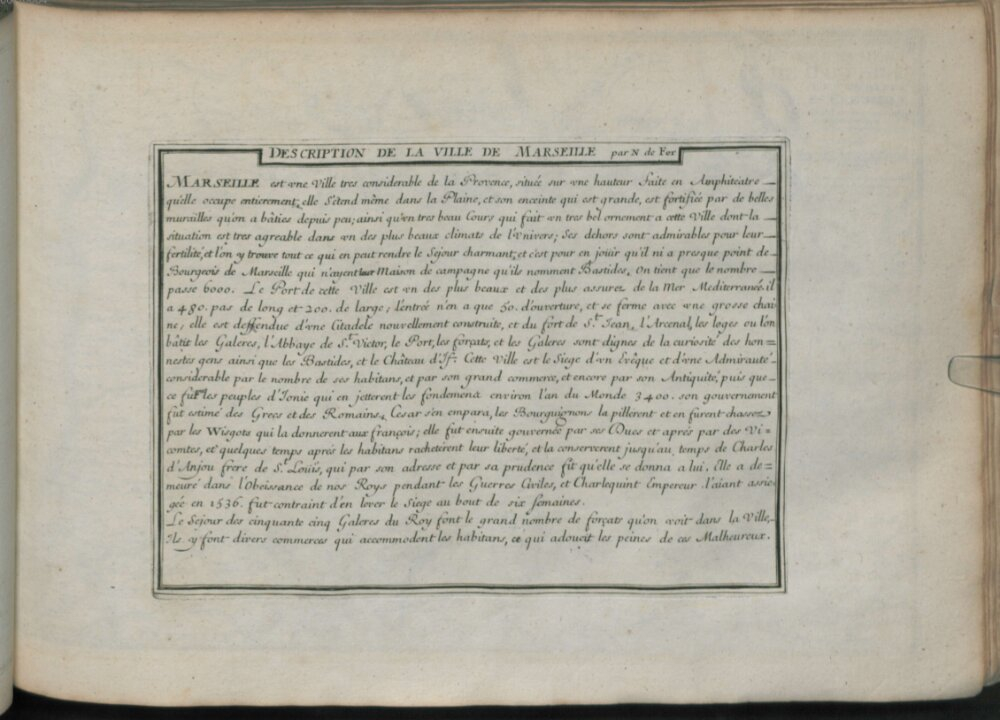 DESCRIPTION DE LA VILLE DE MARSEILLE par N de Fer
MARSEILLE est vne Ville tres considerable de la Provence, située sur vne hauteur faite en Amphitéatre
qu'elle occupe entierement; elle s'étend même dans la Plaine, et son enceinte qui est grande, est fortifiée par de belles
murailles qu'on a bâties depuis peu; ainsi qu'vn tres beau Cours qui fait vn tres bel ornement a cette Ville dont la
situation est tres agreable dans vn des plus beaux climats de l'vnivers; Ses dehors sont admirables pour leur
fertilité, et l'on y trouve tout ce qui en peut rendre le Sejour charmant; et c'est pour en joüir qu'il ni a presque point de
Bourgeois de Marseille qui n'ayent leur Maison de campagne qu'ils nomment Bastides, On tient que le nombre
passe 6000. Le Port de cette Ville est vn des plus beaux et des plus assurez de la Mer Mediterranée. il
a 480. pas de long et 200. de large; l'entrée n'en a que 50. d'ouverture, et se ferme avec vne grosse chai
ne; elle est deffendue d'vne Citadele nouvellement construite, et du fort de S.t Jean, l'Arcenal, les loges ou l'on
bâtit les Galeres, l'Abbaye de S.t Victor, le Port, les forçats, et les Galeres sont dignes de la curiosité des hon-
nestes gens ainsi que les Bastides, et le Château d'If: Cette Ville est le Siege d'vn Evêque et d'vne Admirauté
considerable par le nombre de ses habitans, et par son grand commerce, et encore par son Antiquité, puis que
ce fut les peuples d'Ionie qui en jetterent les fondemens environ l'an du Monde 3400. son gouvernement
fut estimé des Grecs et des Romains, Cesar s'en empara, les Bourguignons la pillerent et en furent chassez
par les Wisgots qui la donnerent aux françois; elle fut ensuite gouvernée par ses Ducs et aprés par des Vi=
comtes, et quelques temps aprés les habitans racheterent leur liberté, et la conserverent jusqu'au temps de Charles
d'Anjou frere de S.t Louïs, qui par son adresse et par sa prudence fit qu'elle se donna a lui. Elle a de=
meuré dans l'Obeissance de nos Roys pendant les Guerres Civiles, et Charlequint Empereur l'aiant assie
gée en 1536. fut contraint d'en lever le Siege au bout de six semaines.
Le Sejour des cinquante cinq Galeres du Roy font le grand nombre de forçats qu'on voit dans la Ville,
Ils y font divers commerces qui accommodent les habitans, ce qui adoucit les peines de ces Malheureux.